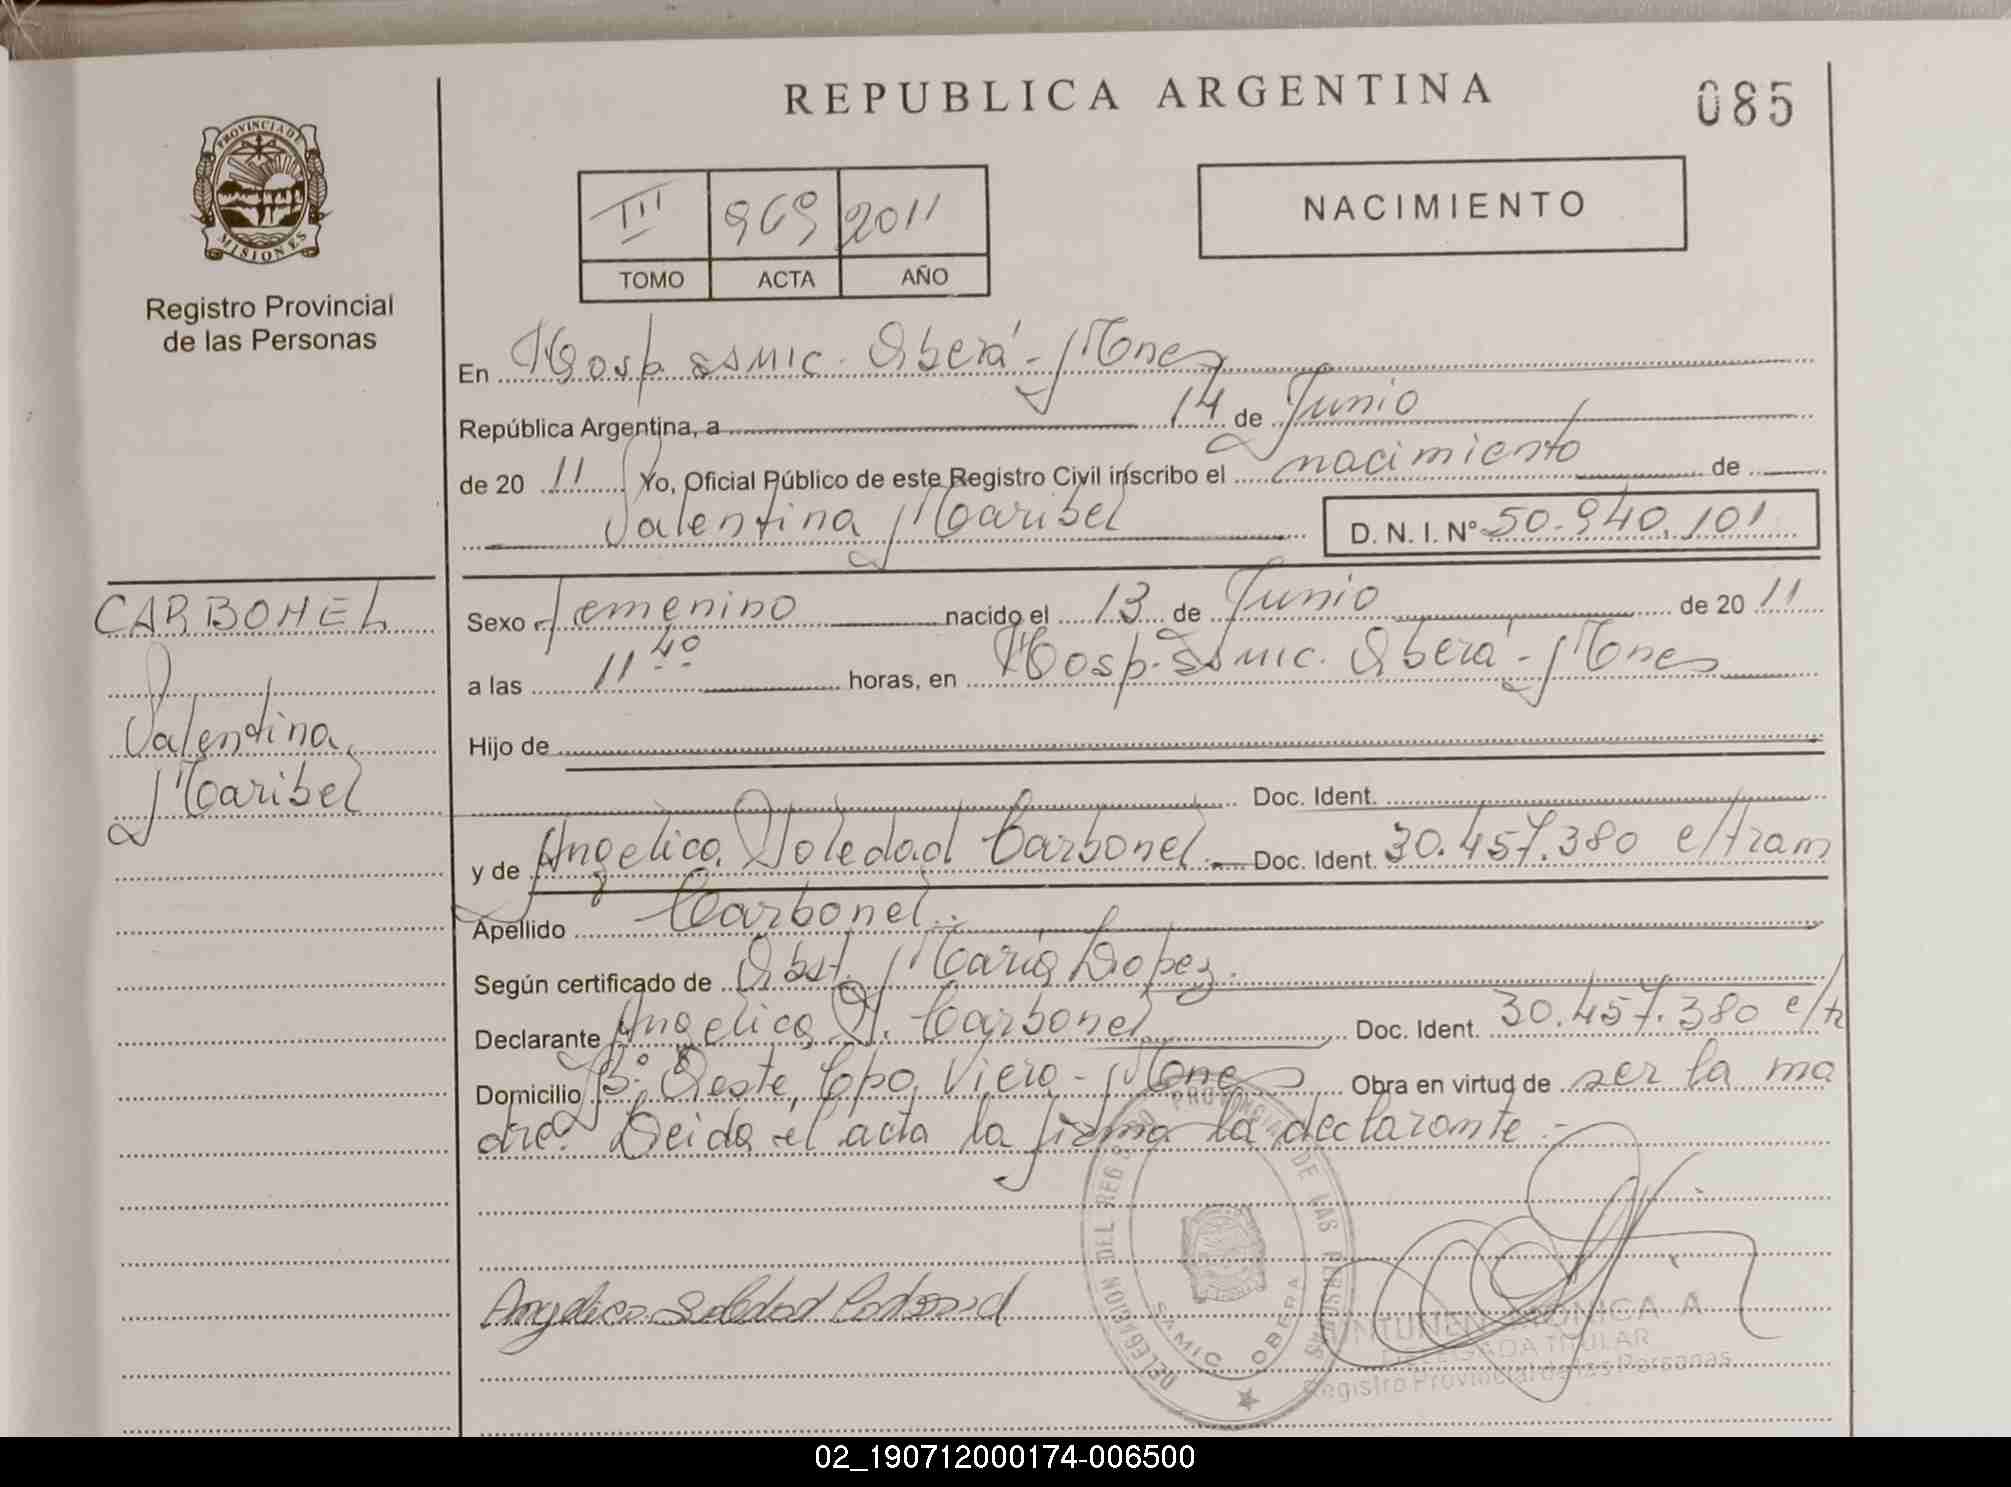 REPUBLICA ARGENTINA
085
PROVINCIA DE
MISIONES
Registro Provincial
de las Personas
III 969 2011
TOMO ACTA AÑO
NACIMIENTO
En Hosp. SSMIC. Oberá - Mnes
República Argentina, a 14 de Junio
de 20 11 Yo, Oficial Público de este Registro Civil inscribo el nacimiento de
Valentina Maribel D. N. I. Nº 50.940.101
CARBONEL
Valentina
Maribel
Sexo femenino nacido el 13 de Junio de 20 11
a las 11 40 horas, en Hosp. SSMIC. Oberá - Mnes
Hijo de
Doc. Ident.
y de Angelica Soledad Carbonel Doc. Ident. 30.457.380 e/tram
Apellido Carbonel
Según certificado de Obst. Maria Lopez.
Declarante Angelica S. Carbonel Doc. Ident. 30.457.380 e/tr
Domicilio Bº Oeste, Cpo. Viera - Mnes Obra en virtud de ser la ma
dre. Leida el acta la firma la declarante.-
Angelica Soledad Carbonel
DELEGACION DEL REGISTRO PROVINCIAL DE LAS PERSONAS
SAMIC OBERA
MONICA A
DELEGADA TITULAR
Registro Provincial de las Personas
02_190712000174-006500